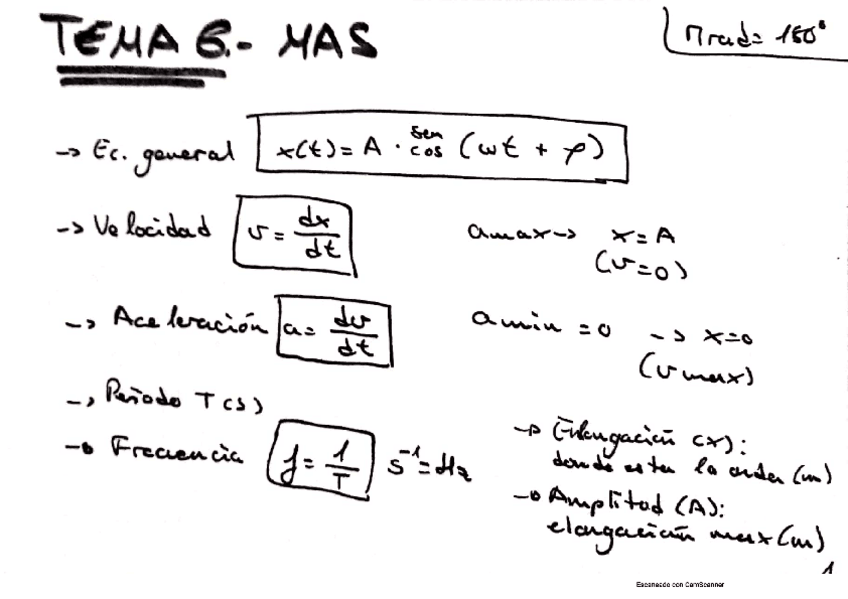 TEMA 6.- MAS
π rad = 180°
→ Ec. general x(t) = A · sen/cos (ωt + φ)
→ Velocidad v = dx/dt
amax → x = A
(v=0)
→ Aceleración a = dv/dt
amin = 0 → x=0
(v max)
→ Periodo T(s)
→ Frecuencia f = 1/T s⁻¹ = Hz
→ Elongación (x):
donde esta la onda (m)
→ Amplitud (A):
elongación max (m)
1
Escaneado con CamScanner